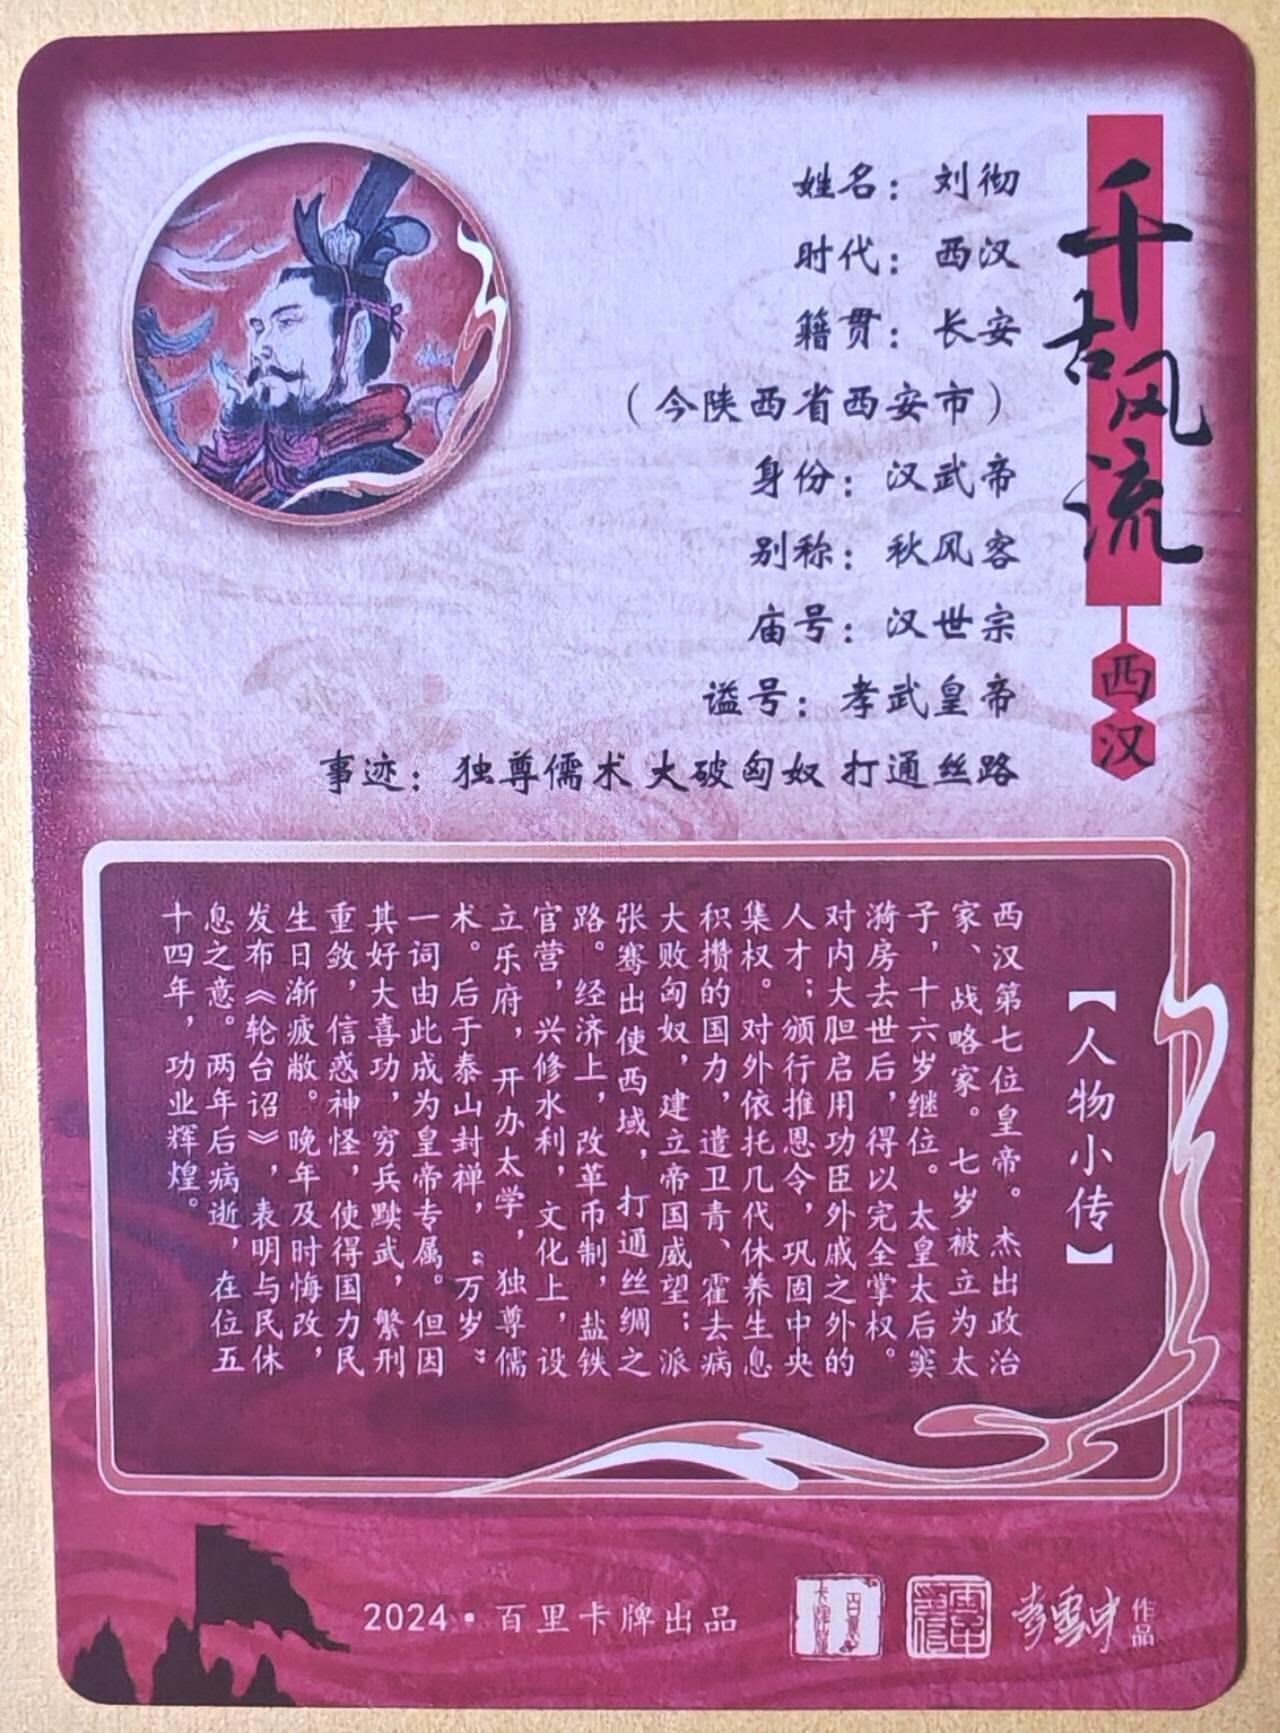 千古风流
西汉
姓名：刘彻
时代：西汉
籍贯：长安
（今陕西省西安市）
身份：汉武帝
别称：秋风客
庙号：汉世宗
谥号：孝武皇帝
事迹：独尊儒术 大破匈奴 打通丝路
【人物小传】
西汉第七位皇帝。杰出政治
家、战略家。七岁被立为太
子，十六岁继位。太皇太后窦
漪房去世后，得以完全掌权。
对内大胆启用功臣外戚之外的
人才；颁行推恩令，巩固中央
集权。对外依托几代休养生息
积攒的国力，遣卫青、霍去病
大败匈奴，建立帝国威望；派
张骞出使西域，打通丝绸之
路。经济上，改革币制，盐铁
官营，兴修水利，文化上，设
立乐府，开办太学，独尊儒
术。后于泰山封禅，“万岁”
一词由此成为皇帝专属。但因
其好大喜功，穷兵黩武，繁刑
重敛，信惑神怪，使得国力民
生日渐疲敝。晚年及时悔改，
发布《轮台诏》，表明与民休
息之意。两年后病逝，在位五
十四年，功业辉煌。
2024·百里卡牌出品
李云中
作品